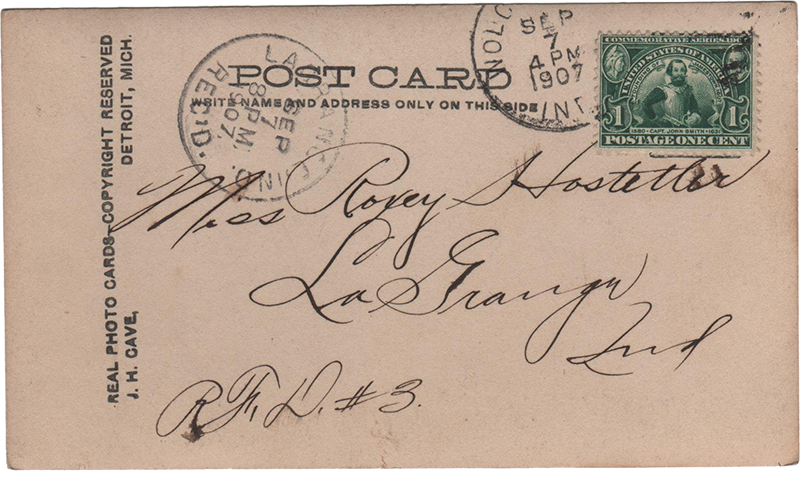 REAL PHOTO CARDS—COPYRIGHT RESERVED
J. H. CAVE, DETROIT, MICH.
POST CARD
WRITE NAME AND ADDRESS ONLY ON THIS SIDE
LAGRANGE
SEP
7
8 PM
1907
IND.
REC'D.
SEP
7
4 PM
1907
IND
COMMEMORATIVE SERIES 1907
UNITED STATES OF AMERICA
1 1
1580 - CAPT. JOHN SMITH - 1631
POSTAGE ONE CENT
Miss Roxey Hostetler
LaGrange
Ind
R.F.D. #3.